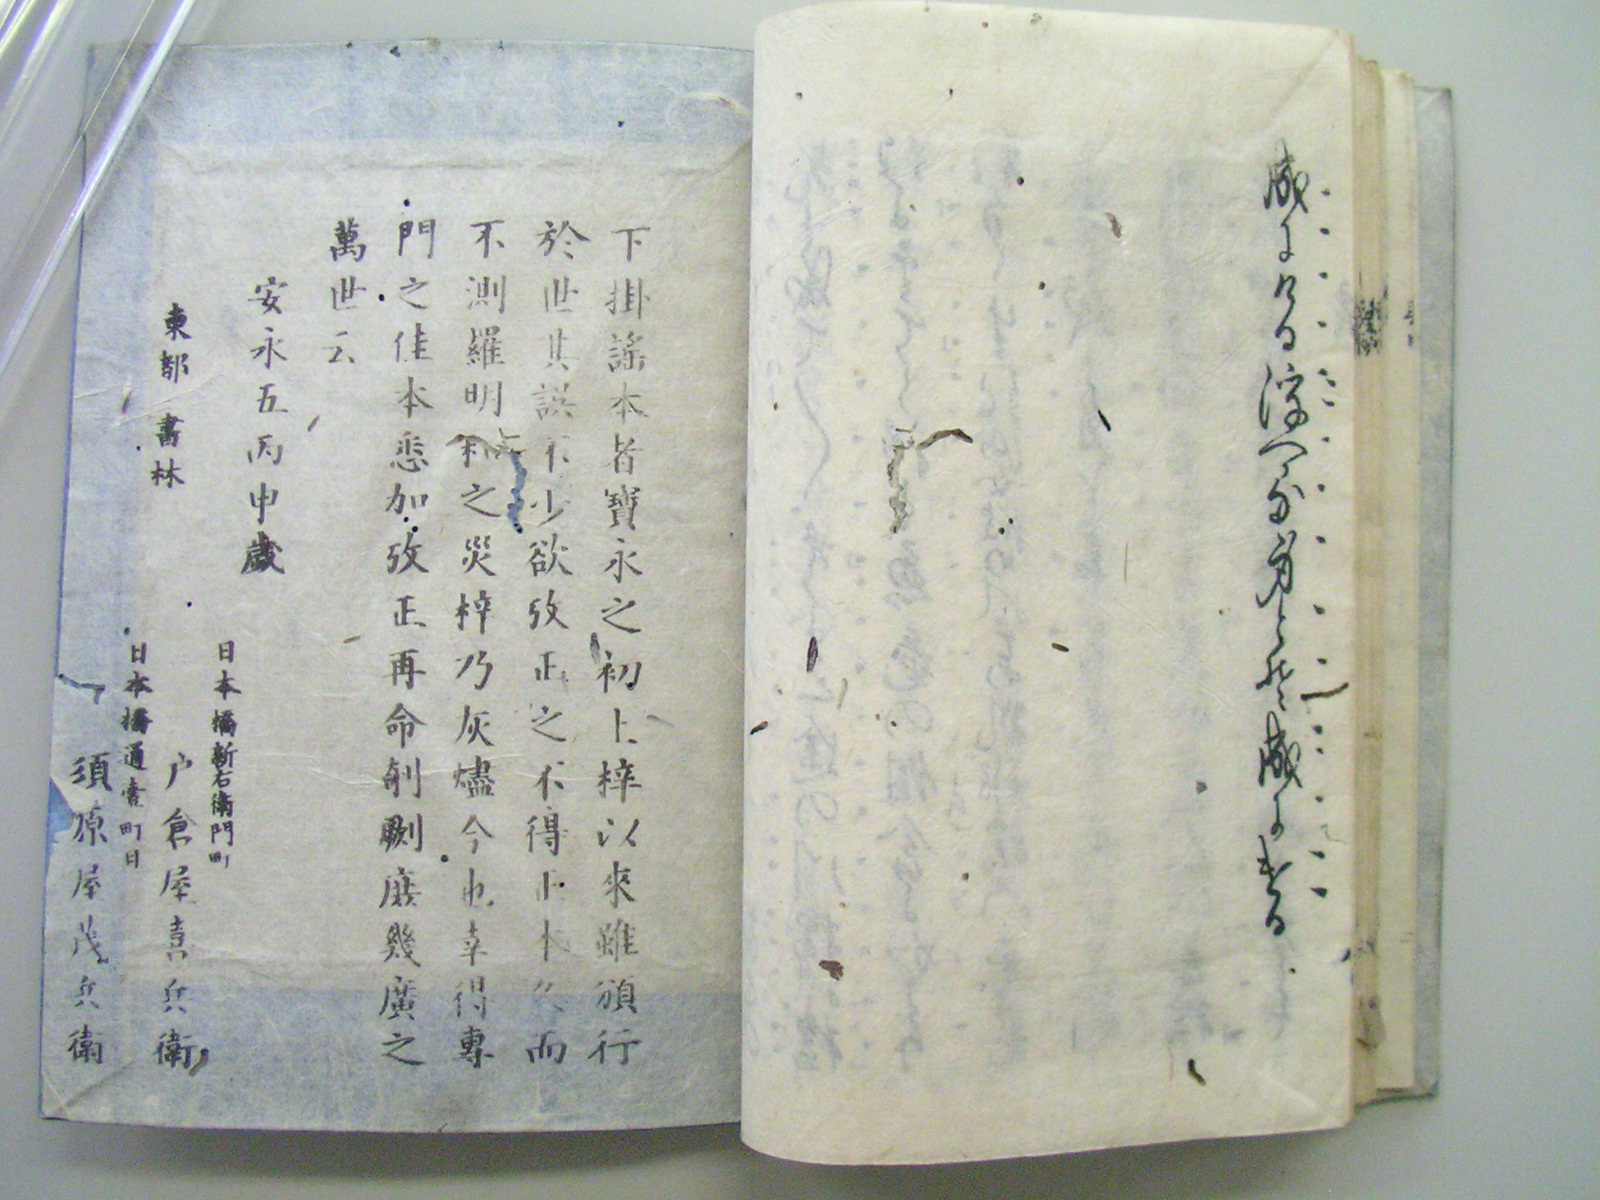 成にける浮へる身とそ成にける
下掛謡本者寶永之初上梓以來雖頒行
於世其誤不少欲攷正之不得正本久而
不測羅明和之災梓乃灰燼今也幸得專
門之佳本悉加攷正再命剞劂庶幾廣之
萬世云
安永五丙申歲
東都書林
日本橋新右衛門町
戸倉屋喜兵衛
日本橋通壹町目
須原屋茂兵衛